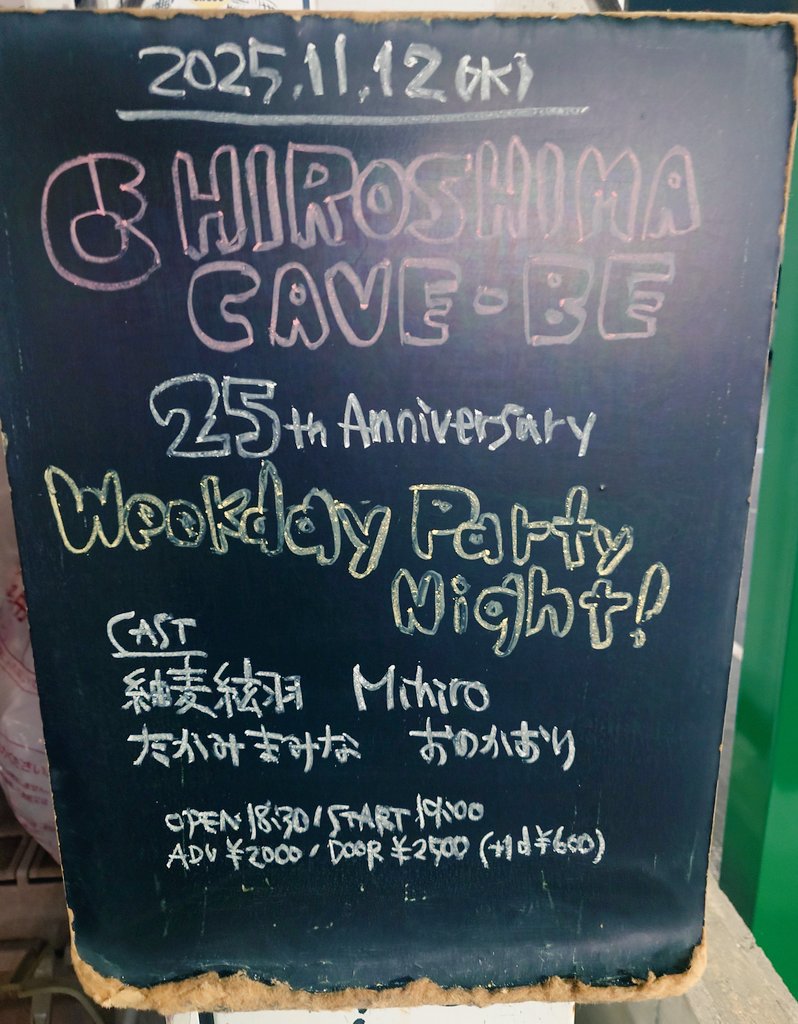 2025.11.12(水)
HIROSHIMA
CAVE-BE
25th Anniversary
Weekday Party
Night!
CAST
紬麦絃羽 Mihiro
たかみまみな おのかおり
OPEN 18:30/START 19:00
ADV ¥2000/DOOR ¥2500 (+1d ¥600)